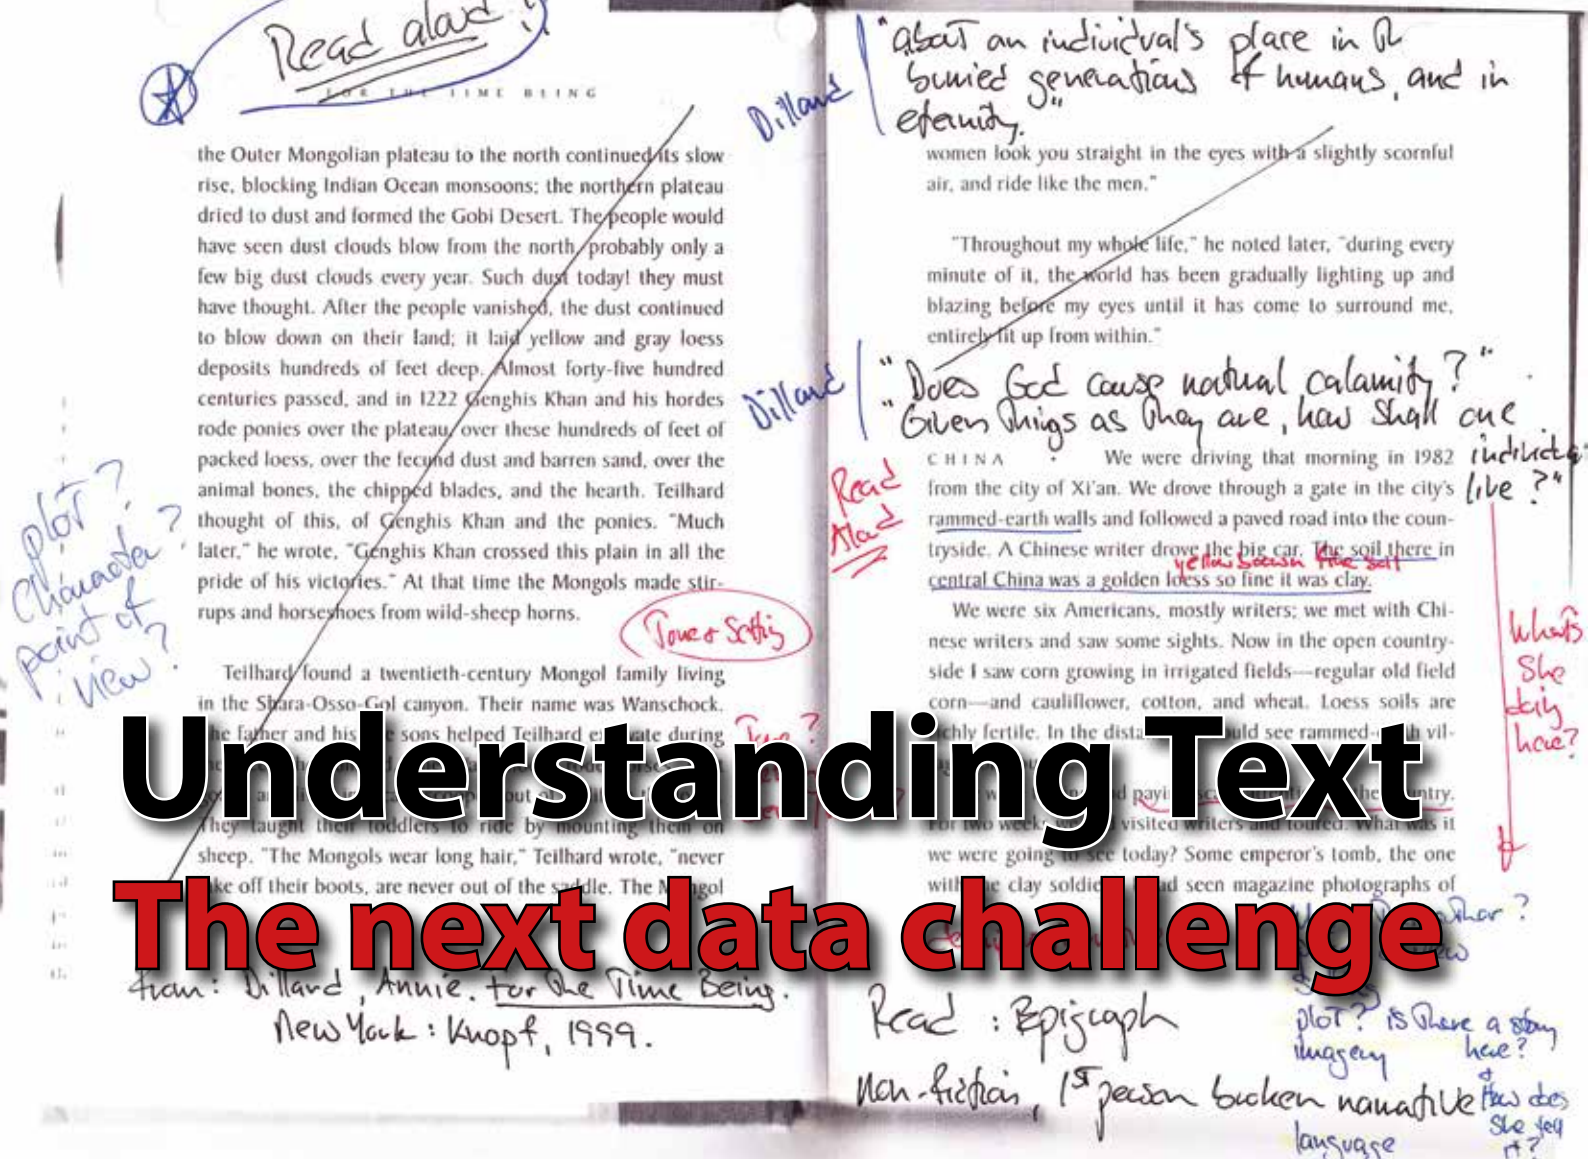 Read aloud!
FOR THE TIME BEING
the Outer Mongolian plateau to the north continued its slow
rise, blocking Indian Ocean monsoons; the northern plateau
dried to dust and formed the Gobi Desert. The people would
have seen dust clouds blow from the north, probably only a
few big dust clouds every year. Such dust today! they must
have thought. After the people vanished, the dust continued
to blow down on their land; it laid yellow and gray loess
deposits hundreds of feet deep. Almost forty-five hundred
centuries passed, and in 1222 Genghis Khan and his hordes
rode ponies over the plateau, over these hundreds of feet of
packed loess, over the fecund dust and barren sand, over the
animal bones, the chipped blades, and the hearth. Teilhard
thought of this, of Genghis Khan and the ponies. "Much
later," he wrote, "Genghis Khan crossed this plain in all the
pride of his victories." At that time the Mongols made stir-
rups and horseshoes from wild-sheep horns.
plot?
Character?
point of
view?
Tone & Setting
Teilhard found a twentieth-century Mongol family living
in the Shara-Osso-Gol canyon. Their name was Wanschock.
The father and his sons helped Teilhard during
They taught their toddlers to ride by mounting them on
sheep. "The Mongols wear long hair," Teilhard wrote, "never
take off their boots, are never out of the saddle. The Mongol
from: Dillard, Annie. For the Time Being.
New York: Knopf, 1999.
Dillard
"about an individual's place in the
buried generations of humans, and in
eternity."
women look you straight in the eyes with a slightly scornful
air, and ride like the men."
"Throughout my whole life," he noted later, "during every
minute of it, the world has been gradually lighting up and
blazing before my eyes until it has come to surround me,
entirely lit up from within."
Dillard
"Does God cause natural calamity?"
"Given things as they are, how shall one
individual
live?"
Read
Aloud
CHINA • We were driving that morning in 1982
from the city of Xi'an. We drove through a gate in the city's
rammed-earth walls and followed a paved road into the coun-
tryside. A Chinese writer drove the big car. The soil there in
yellow brown fine silt
central China was a golden loess so fine it was clay.
We were six Americans, mostly writers; we met with Chi-
nese writers and saw some sights. Now in the open country-
side I saw corn growing in irrigated fields—regular old field
corn—and cauliflower, cotton, and wheat. Loess soils are
richly fertile. In the distance could see rammed-earth vil-
What's
She
doing
here?
paying country.
For two weeks we visited writers and toured. What was it
we were going to see today? Some emperor's tomb, the one
with the clay soldiers. had seen magazine photographs of
Understanding Text
The next data challenge
Read: Epigraph
Non-fiction, 1st person broken narrative
plot? is there a story
here?
imagery
&
How does
She tell
it?
language